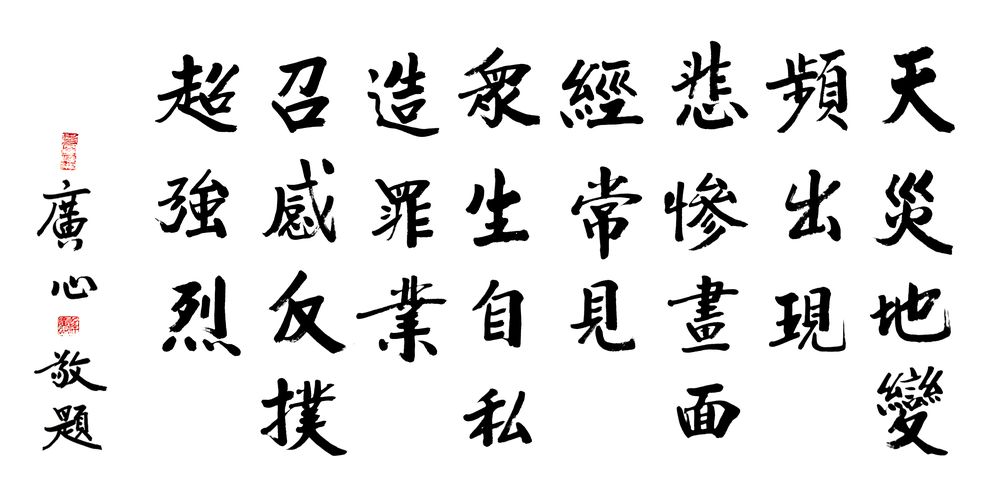 天災地變
頻出現
悲慘畫面
經常見
眾生自私
造罪業
召感反撲
超強烈
廣心敬題